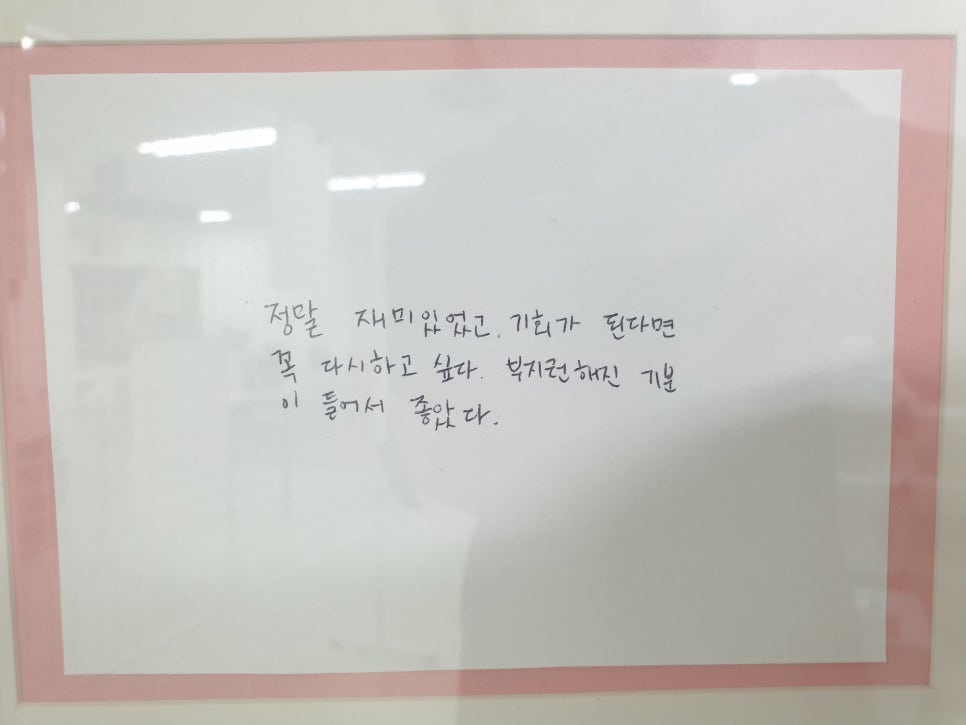 정말 재미있었고, 기회가 된다면
꼭 다시하고 싶다. 부지런해진 기분
이 들어서 좋았다.